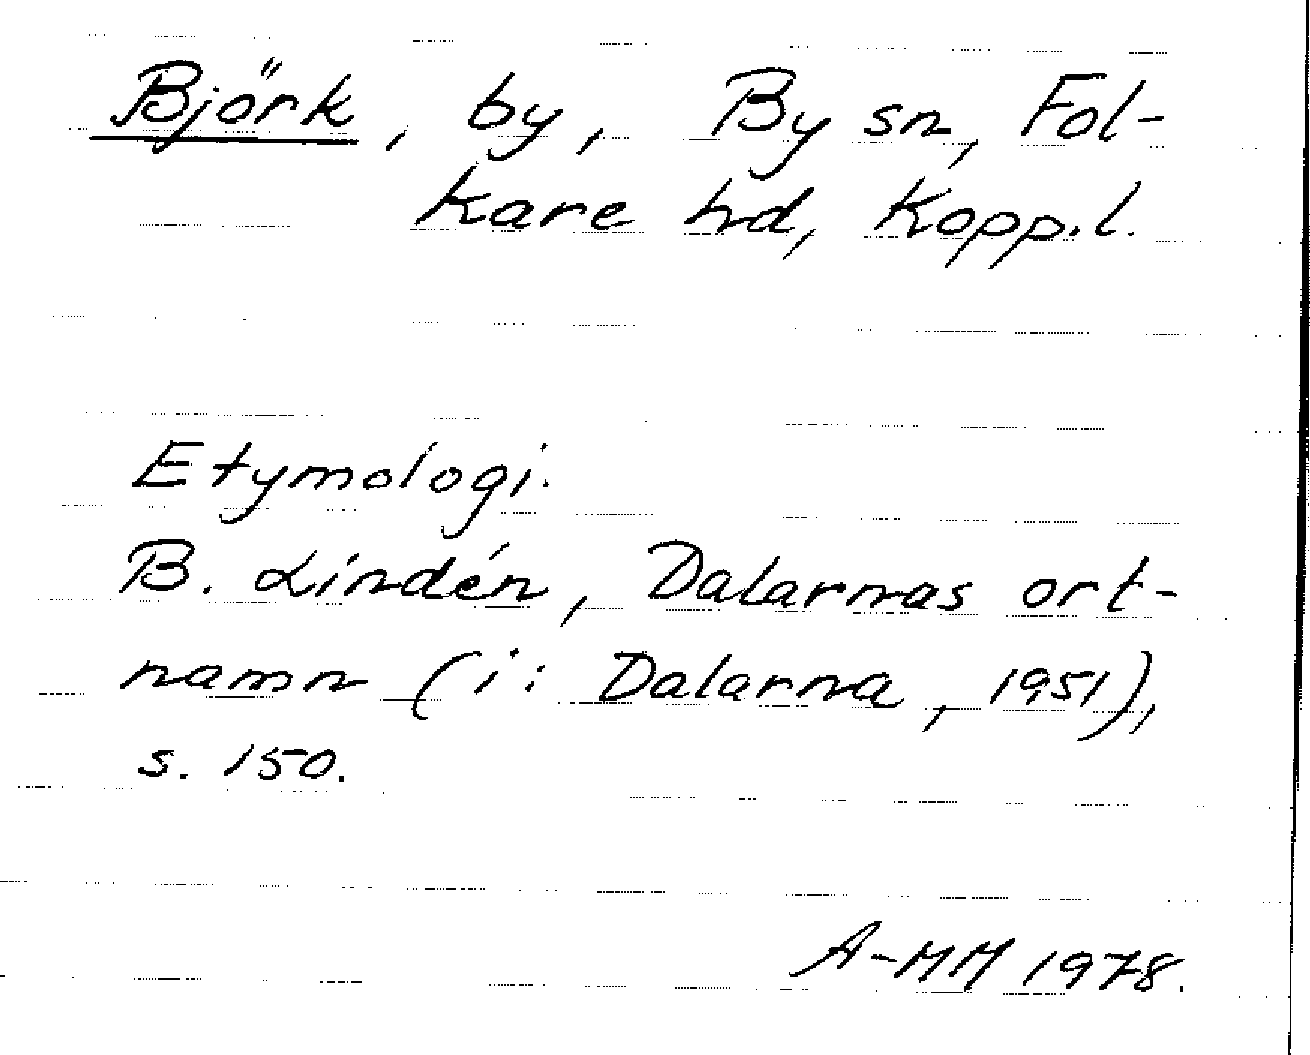 Björk, by, By sn, Fol-
kare hd, Kopp.l.
Etymologi.
B. Lindén, Dalarnas ort-
namn (i: Dalarna, 1951),
s. 150.
A-MM 1978.